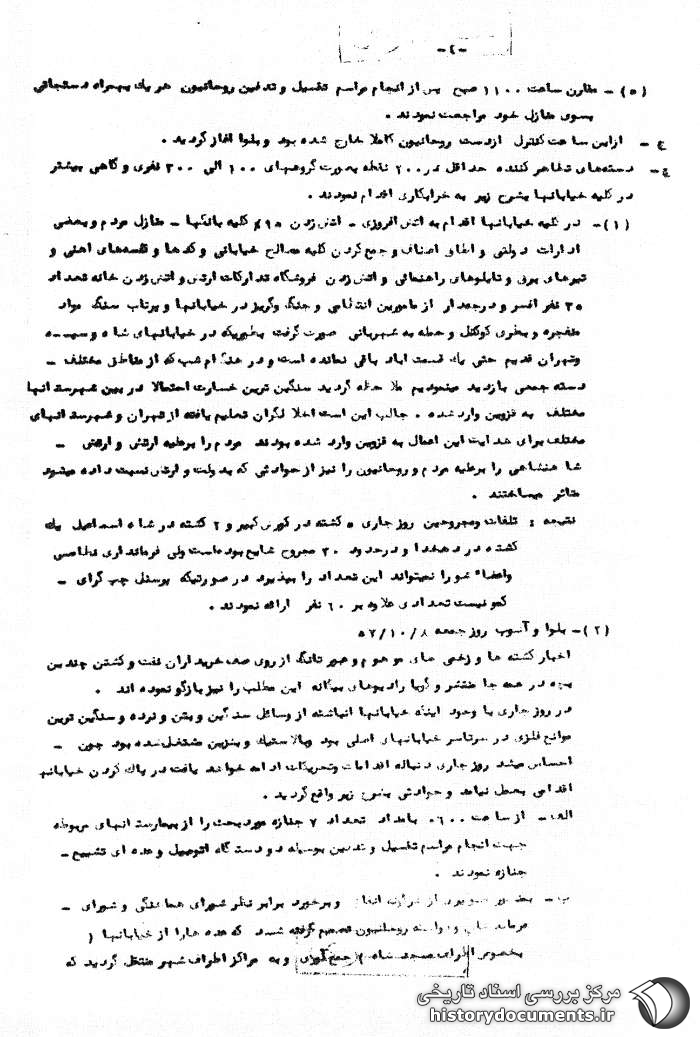 -۴-
(۵)- مقارن ساعت ۱۱۰۰ صبح پس از انجام مراسم تغسیل و تدفین روحانیون هر یک بهمراه دستجاتی
بسوی منازل خود مراجعت نمودند .
ج - ازاین ساعت کنترل ازدست روحانیون کاملا خارج شده بود و بلوا آغاز گردید .
چ - دسته‌های تظاهر کننده حداقل در ۲۰۰ نقطه بصورت گروههای ۱۰۰ الی ۳۰۰ نفری و گاهی بیشتر
در کلیه خیابانها بشرح زیر به خرابکاری اقدام نمودند .
(۱)- در کلیه خیابانها اقدام به آتش افروزی - آتش زدن کلیه بانکها - منازل مردم و بعضی
ادارات دولتی و اطاق اصناف و جمع کردن کلیه مصالح خیابانی و کدها و نفسه‌های آهنی و
تیرهای برق و تابلوهای راهنمائی و آتش زدن فروشگاه تدارکات ارتش و آتش زدن خانه تعداد
۳۵ نفر افسر و درجه‌دار از مامورین انتظامی و جنگ و گریز در خیابانها و پرتاب سنگ مواد
منفجره و بطری کوکتل و حمله به شهربانی صورت گرفت بطوریکه در خیابانهای شاه و سپه
وتهران قدیم حتی یک قسمت آباد باقی نمانده است و در هنگام شب که از مناطق مختلف -
دسته جمعی بازدید مینمودیم ملاحظه گردید سنگین ترین خسارت احتمالا در بین شهرستانها
مختلف به قزوین وارد شده . جالب این است اخلالگران تعلیم یافته از تهران و شهرستانهای
مختلف برای هدایت این اعمال به قزوین وارد شده بودند مردم را برعلیه ارتش و ارتش -
شاهنشاهی را برعلیه مردم و روحانیون را نیز از حوادثی که بدولت و ارتش نسبت داده میشود
متاثر میساختند .
نتیجه : تلفات ومجروحین روز جاری ۵ کشته در کورش کبیر و ۲ کشته در شاه اسماعیل یک
کشته در دهخدا و درحدود ۳۰ مجروح شایع بوده‌است ولی فرمانداری نظامی
واعضاء شورا نمیتواند این تعداد را بپذیرد در صورتیکه پرسنل چپ گرای -
کمونیست تعدادی علاوه بر ۶۰ نفر ارائه نمودند .
(۲)- بلوا و آشوب روز جمعه ۵۷/۱۰/۸
اخبار کشته ها و زخمی های موهوم و عبور تانک از روی صف خریداران نفت و کشتن چندین
بچه در همه جا منتشر و گویا رادیوهای بیگانه این مطلب را نیز بازگو نموده اند .
در روز جاری با وجود اینکه خیابانها انباشته از وسائل سنگین و بتن و نرده و سنگین ترین
موانع فلزی در سرتاسر خیابانهای اصلی بود وبالاستیک و بنزین مشتعل شده بود چون -
احساس میشد روز جاری دنباله اقدامات وتحریکات ادامه خواهد یافت در پاک کردن خیابانها
اقدامی بعمل نیامد و حوادثی بشرح زیر واقع گردید .
الف- از ساعت ۰۶۰۰ بامداد تعداد ۷ جنازه موردبحث را از بیمارستانهای مربوطه
جهت انجام مراسم تغسیل و تدفین بوسیله دو دستگاه اتومبیل و عده ای تشییع -
جنازه نمودند .
ب- بمنظور جلوگیری از هرگونه اتفاق و برخورد برابر نظر شورای هماهنگی و شورای -
فرمانداری وبوسیله روحانیون تصمیم گرفته شد که عده هارا از خیابانها (
بخصوص اطراف مسجد شاه ) جمع آوری و به مراکز اطراف شهر منتقل گردید که
مرکز بررسی اسناد تاریخی
historydocuments.ir